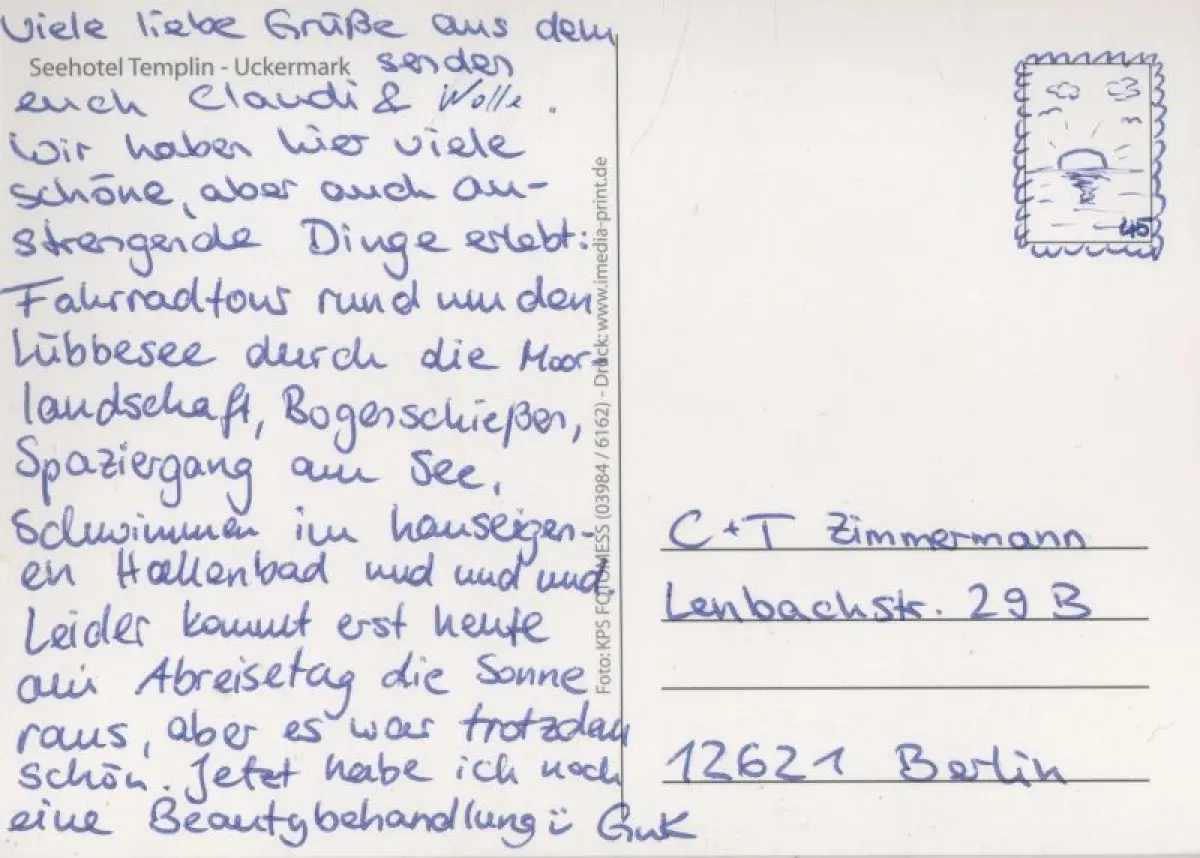 Viele liebe Grüße aus dem
Seehotel Templin - Uckermark senden
euch Claudi & Wolle.
Wir haben hier viele
schöne, aber auch an-
strengende Dinge erlebt:
Fahrradtour rund um den
Lübbesee durch die Moor-
landschaft, Bogenschießen,
Spaziergang am See,
Schwimmen im hauseigen-
en Hallenbad und und und
Leider kommt erst heute
am Abreisetag die Sonne
raus, aber es war trotzdem
schön. Jetzt habe ich noch
eine Beautybehandlung :) GuK
Foto: KPS FOTOMESS (03984 / 6162) - Druck: www.imedia-print.de
45
C + T Zimmermann
Lenbachstr. 29 B
12621 Berlin